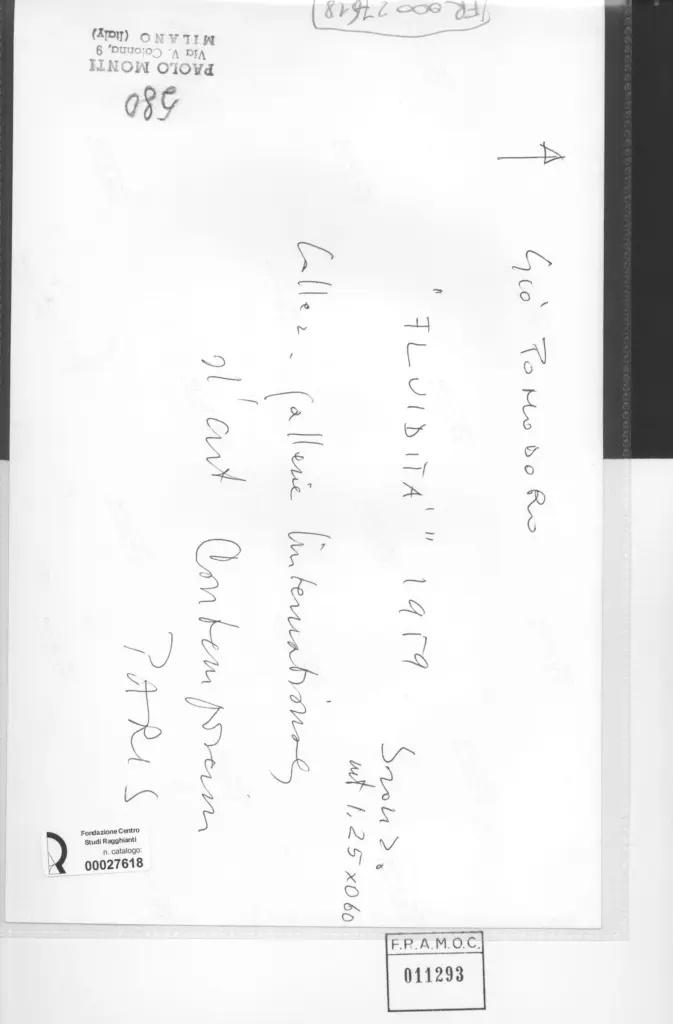 FR 00027618
PAOLO MONTI
Via V. Colonna, 9
MILANO (Italy)
580
Giò POMODORO
"FLUIDITÀ" 1959
Bronzo
mt 1,25 x 060
Gallerie Internationale
d'art Contemporain
PARIS
Fondazione Centro
Studi Ragghianti
n. catalogo:
00027618
F.R.A.M.O.C.
011293